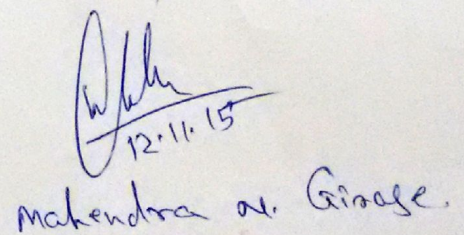 12.11.15
Mahendra N. Girase.